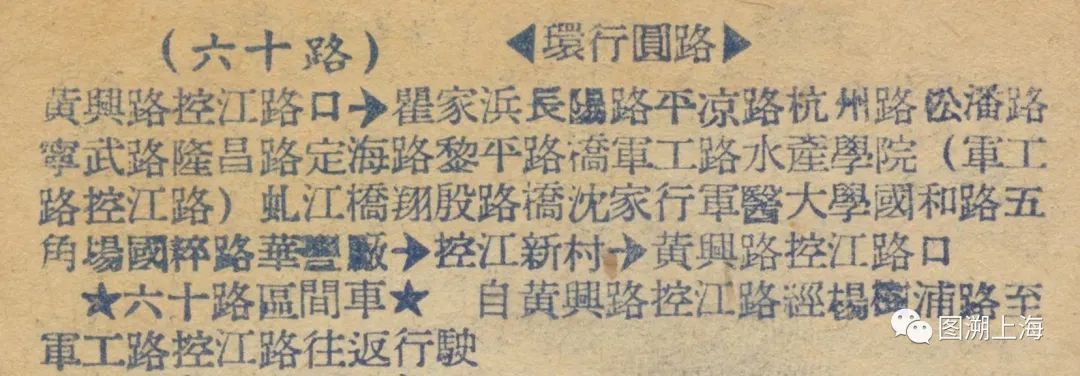 (六十路) ◀環行圓路▶
黃興路控江路口→瞿家浜長陽路平凉路杭州路松潘路
寧武路隆昌路定海路黎平路橋軍工路水產學院(軍工
路控江路)虬江橋翔殷路橋沈家行軍醫大學國和路五
角場國粹路華豐廠→控江新村→黃興路控江路口
★六十路區間車★ 自黃興路控江路經楊樹浦路至
軍工路控江路往返行駛
图溯上海